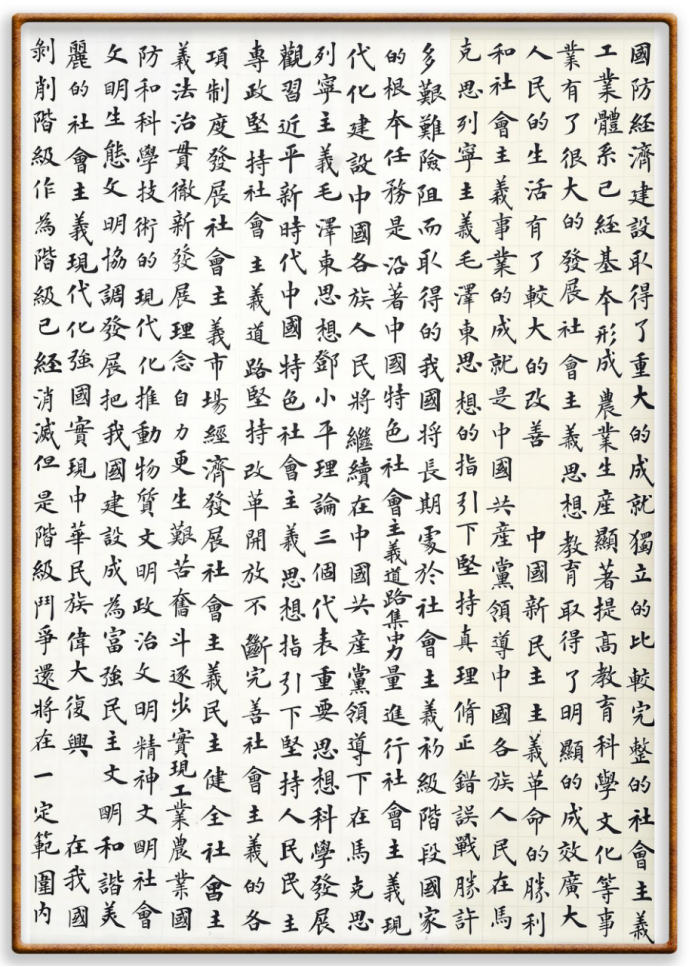 國防経濟建設取得了重大的成就獨立的比較完整的社會主義
工業體系已経基本形成農業生産顯著提高教育科學文化等事
業有了很大的發展社會主義思想教育取得了明顯的成效廣大
人民的生活有了較大的改善 中國新民主主義革命的勝利
和社會主義事業的成就是中國共産黨領導中國各族人民在馬
克思列寧主義毛澤東思想的指引下堅持真理脩正錯誤戰勝許
多艱難險阻而取得的我國将長期處於社會主義初級階段國家
的根本任務是沿著中國特色社會主義道路集中力量進行社會主義現
代化建設中國各族人民將繼續在中國共産黨領導下在馬克思
列寧主義毛澤東思想鄧小平理論三個代表重要思想科學發展
觀習近平新時代中國特色社會主義思想指引下堅持人民民主
專政堅持社會主義道路堅持改革開放不斷完善社會主義的各
項制度發展社會主義市場經濟發展社會主義民主健全社會主
義法治貫徹新發展理念自力更生艱苦奮斗逐步實現工業農業國
防和科學技術的現代化推動物質文明政治文明精神文明社會
文明生態文明協調發展把我國建設成為富強民主文明和諧美
麗的社會主義現代化強國實現中華民族偉大復興 在我國
剝削階級作為階級已經消滅但是階級鬥爭還將在一定範圍内